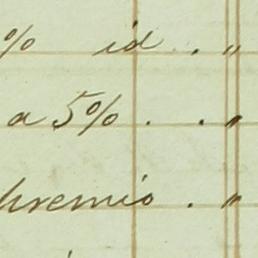 % id . "
a 5% . . "
premio . "